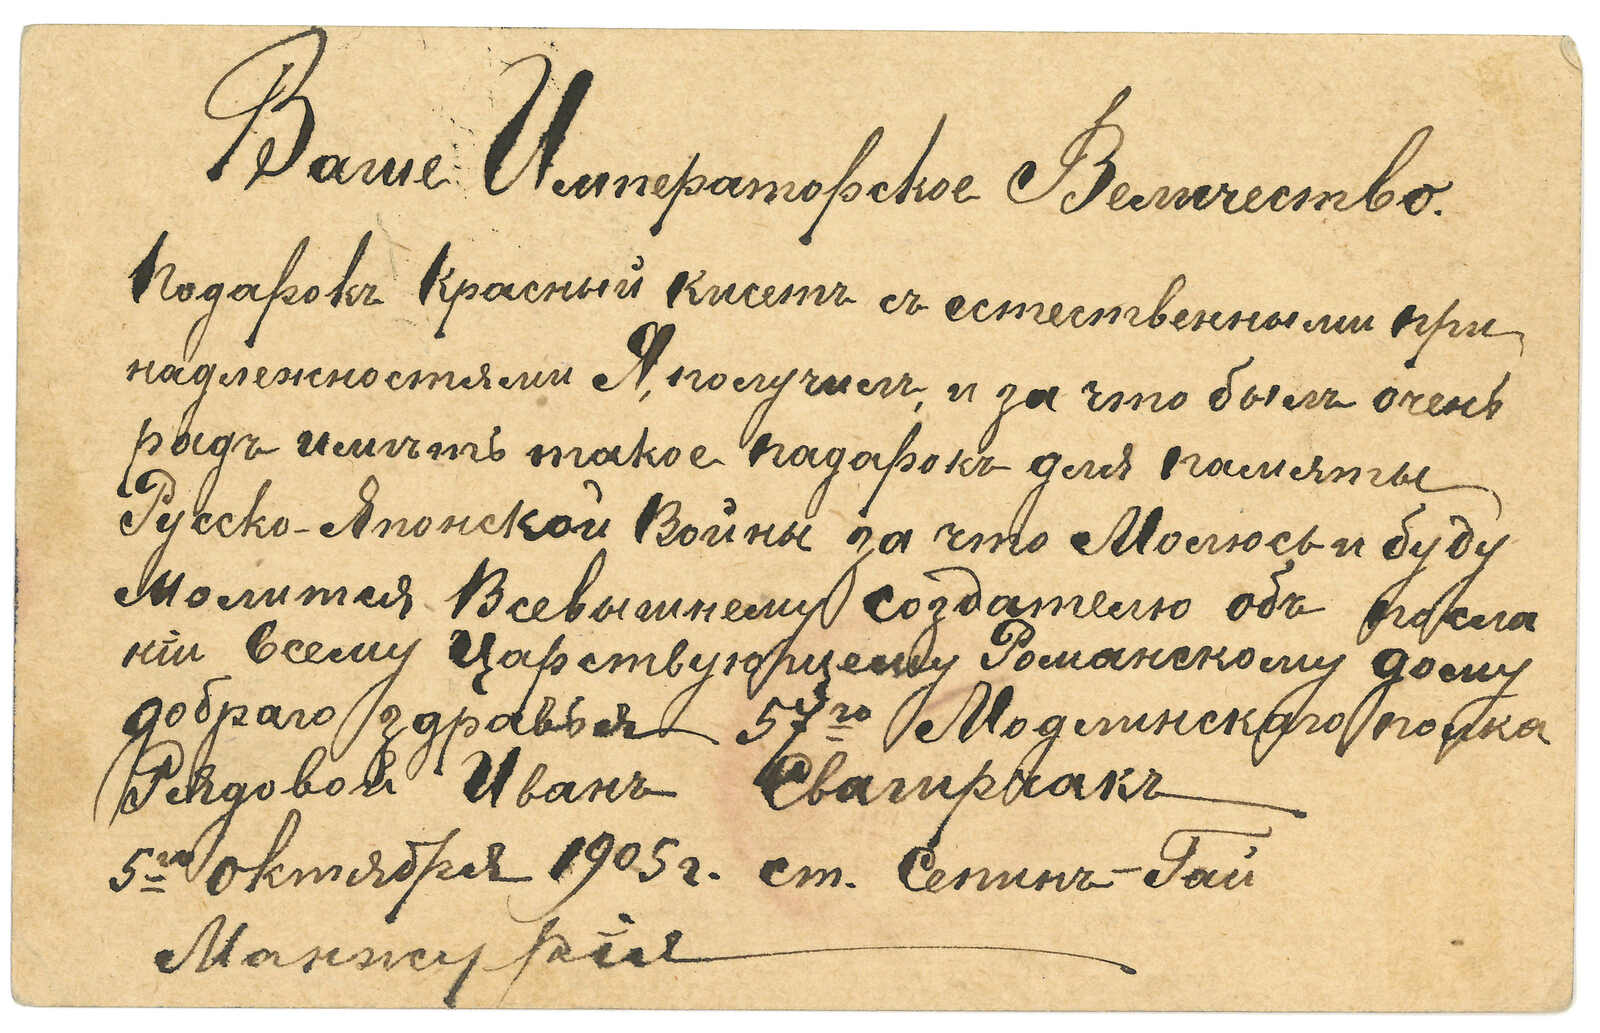 Ваше Императорское Величество.
подарокъ Красный кисетъ съ естественными при
надлежностями Я, получилъ, и за что былъ очень
радъ имѣть такое падарокъ для памяты
Русско-Японской Войны за что Молюсь и буду
молится Всевышнему создателю объ посла
ніи всему Царствующему Романскому дому
добраго здравья 57го Модлинскаго полка
Рядовой Иванъ
5го октября 1905 г. ст. Сепинъ-Гай
Манжурія